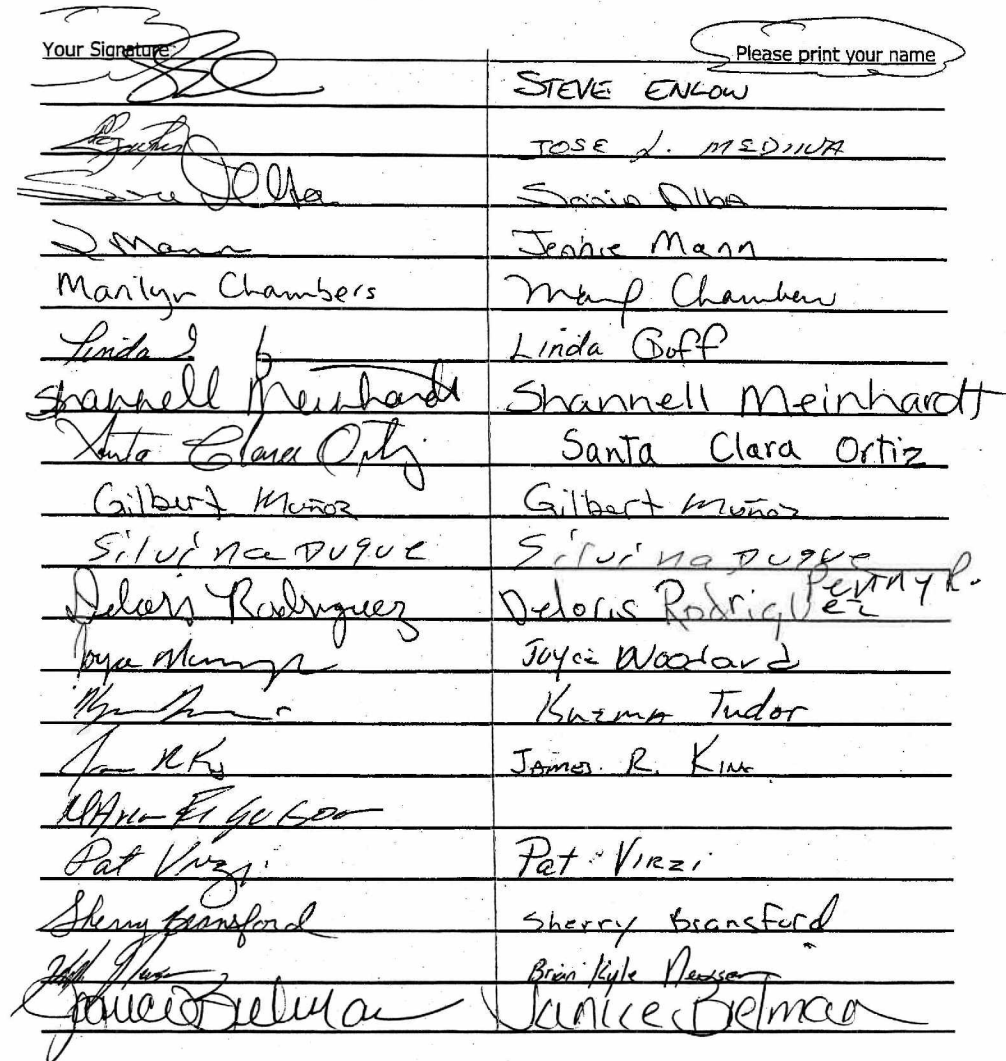 Your Signature Please print your name
STEVE ENLOW
JOSE L. MEDINA
Sonia Alba
J Mann Jennie Mann
Marilyn Chambers Chambers
Linda Linda Goff
Shannell Meinhardt Shannell Meinhardt
Santa Clara Ortiz Santa Clara Ortiz
Gilbert Muñoz Gilbert Muñoz
Silvina DUQUE Silvina DUQUE
Penny R.
Deloris Rodriguez Deloris Rodriguez
Joyce Joyce Woodard
Kuzma Tudor
JAMES R. KING
Pat Virzi Pat VIRZI
Sherry Bransford Sherry Bransford
Brian Kyle
Janice Bielman Janice Bielman